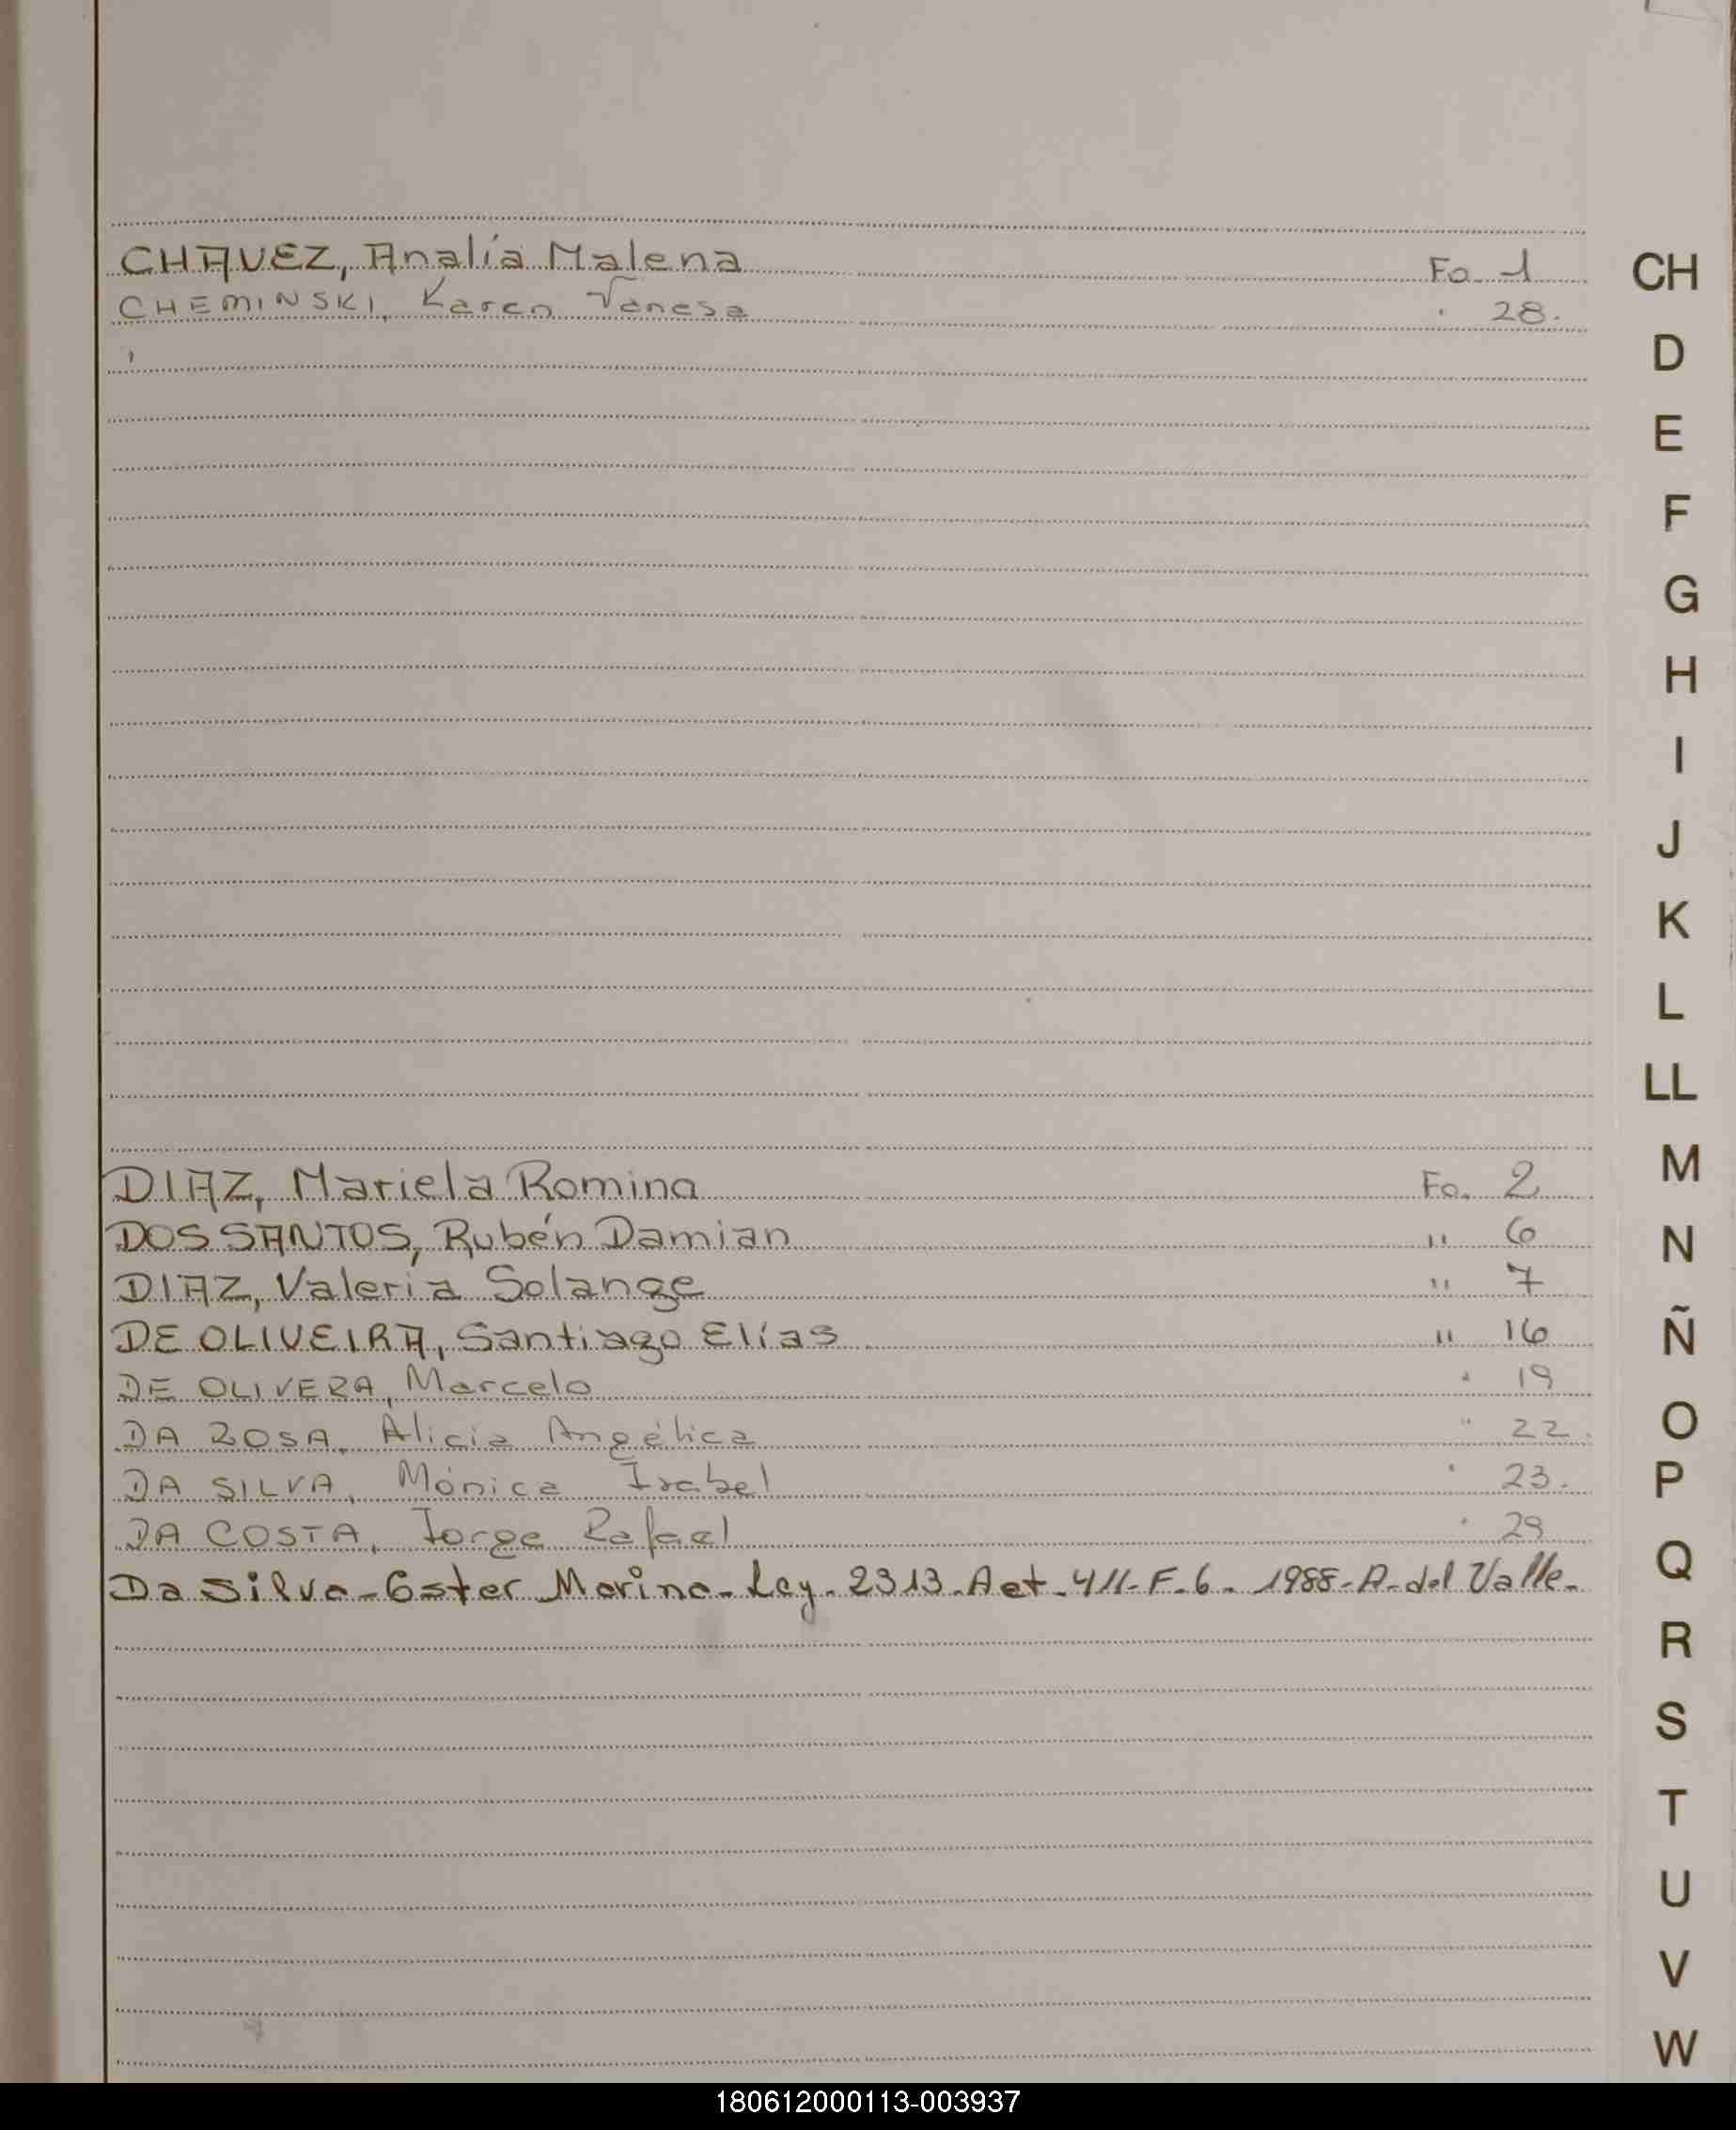 CHAVEZ, Analía Malena Fo. 1
CHEMINSKI, Karen Vanesa " 28.
DIAZ, Mariela Romina Fo. 2
DOS SANTOS, Rubén Damian " 6
DIAZ, Valeria Solange " 7
DE OLIVEIRA, Santiago Elías " 16
DE OLIVERA, Marcelo " 19
DA ROSA, Alicia Angélica " 22.
DA SILVA, Mónica Isabel " 23.
DA COSTA, Jorge Rafael " 29
Da Silva - Ester Marina - Ley - 2313 - Act - 411 - F - 6 - 1988 - A - del Valle -
CH
D
E
F
G
H
I
J
K
L
LL
M
N
Ñ
O
P
Q
R
S
T
U
V
W
180612000113-003937